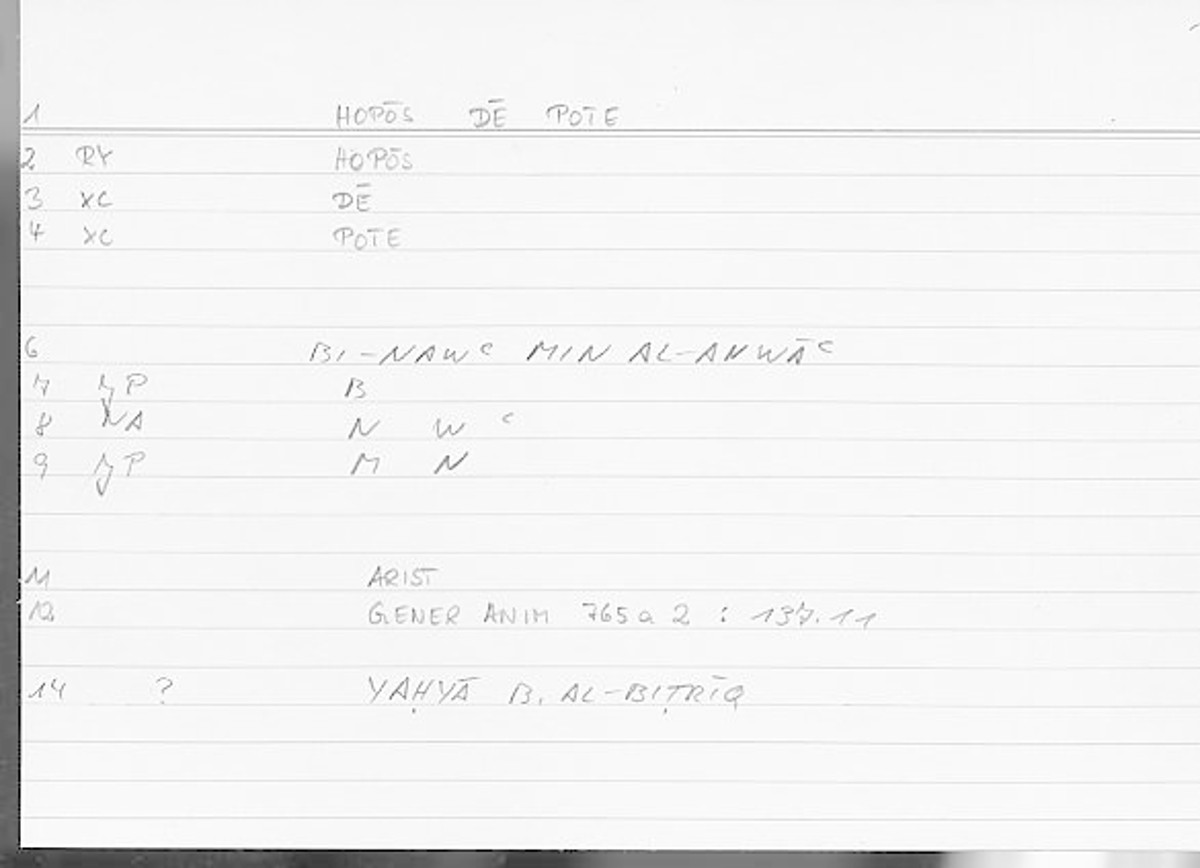 1 HOPŌS DĒ POTE
2 RY HOPŌS
3 XC DĒ
4 XC POTE
6 BI-NAWᶜ MIN AL-ANWĀᶜ
7 JP B
8 NA N W ᶜ
9 JP M N
11 ARIST
12 GENER ANIM 765a2 : 137.11
14 ? YAḤYĀ B. AL-BIṬRĪQ